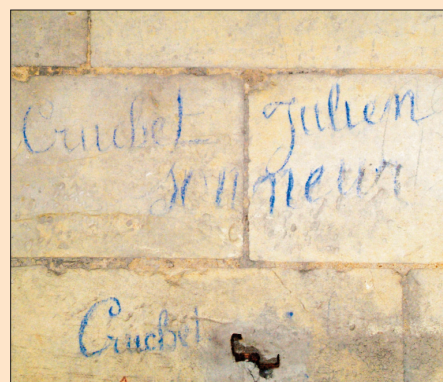 Cruchet Julien
sonneur
Cruchet